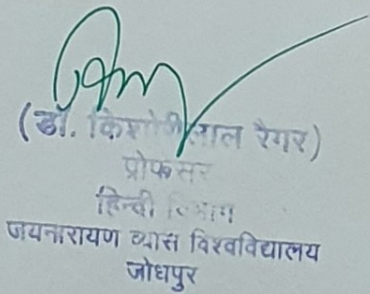 (डॉ. किशोरीलाल रैगर)
प्रोफेसर
हिन्दी विभाग
जयनारायण व्यास विश्वविद्यालय
जोधपुर